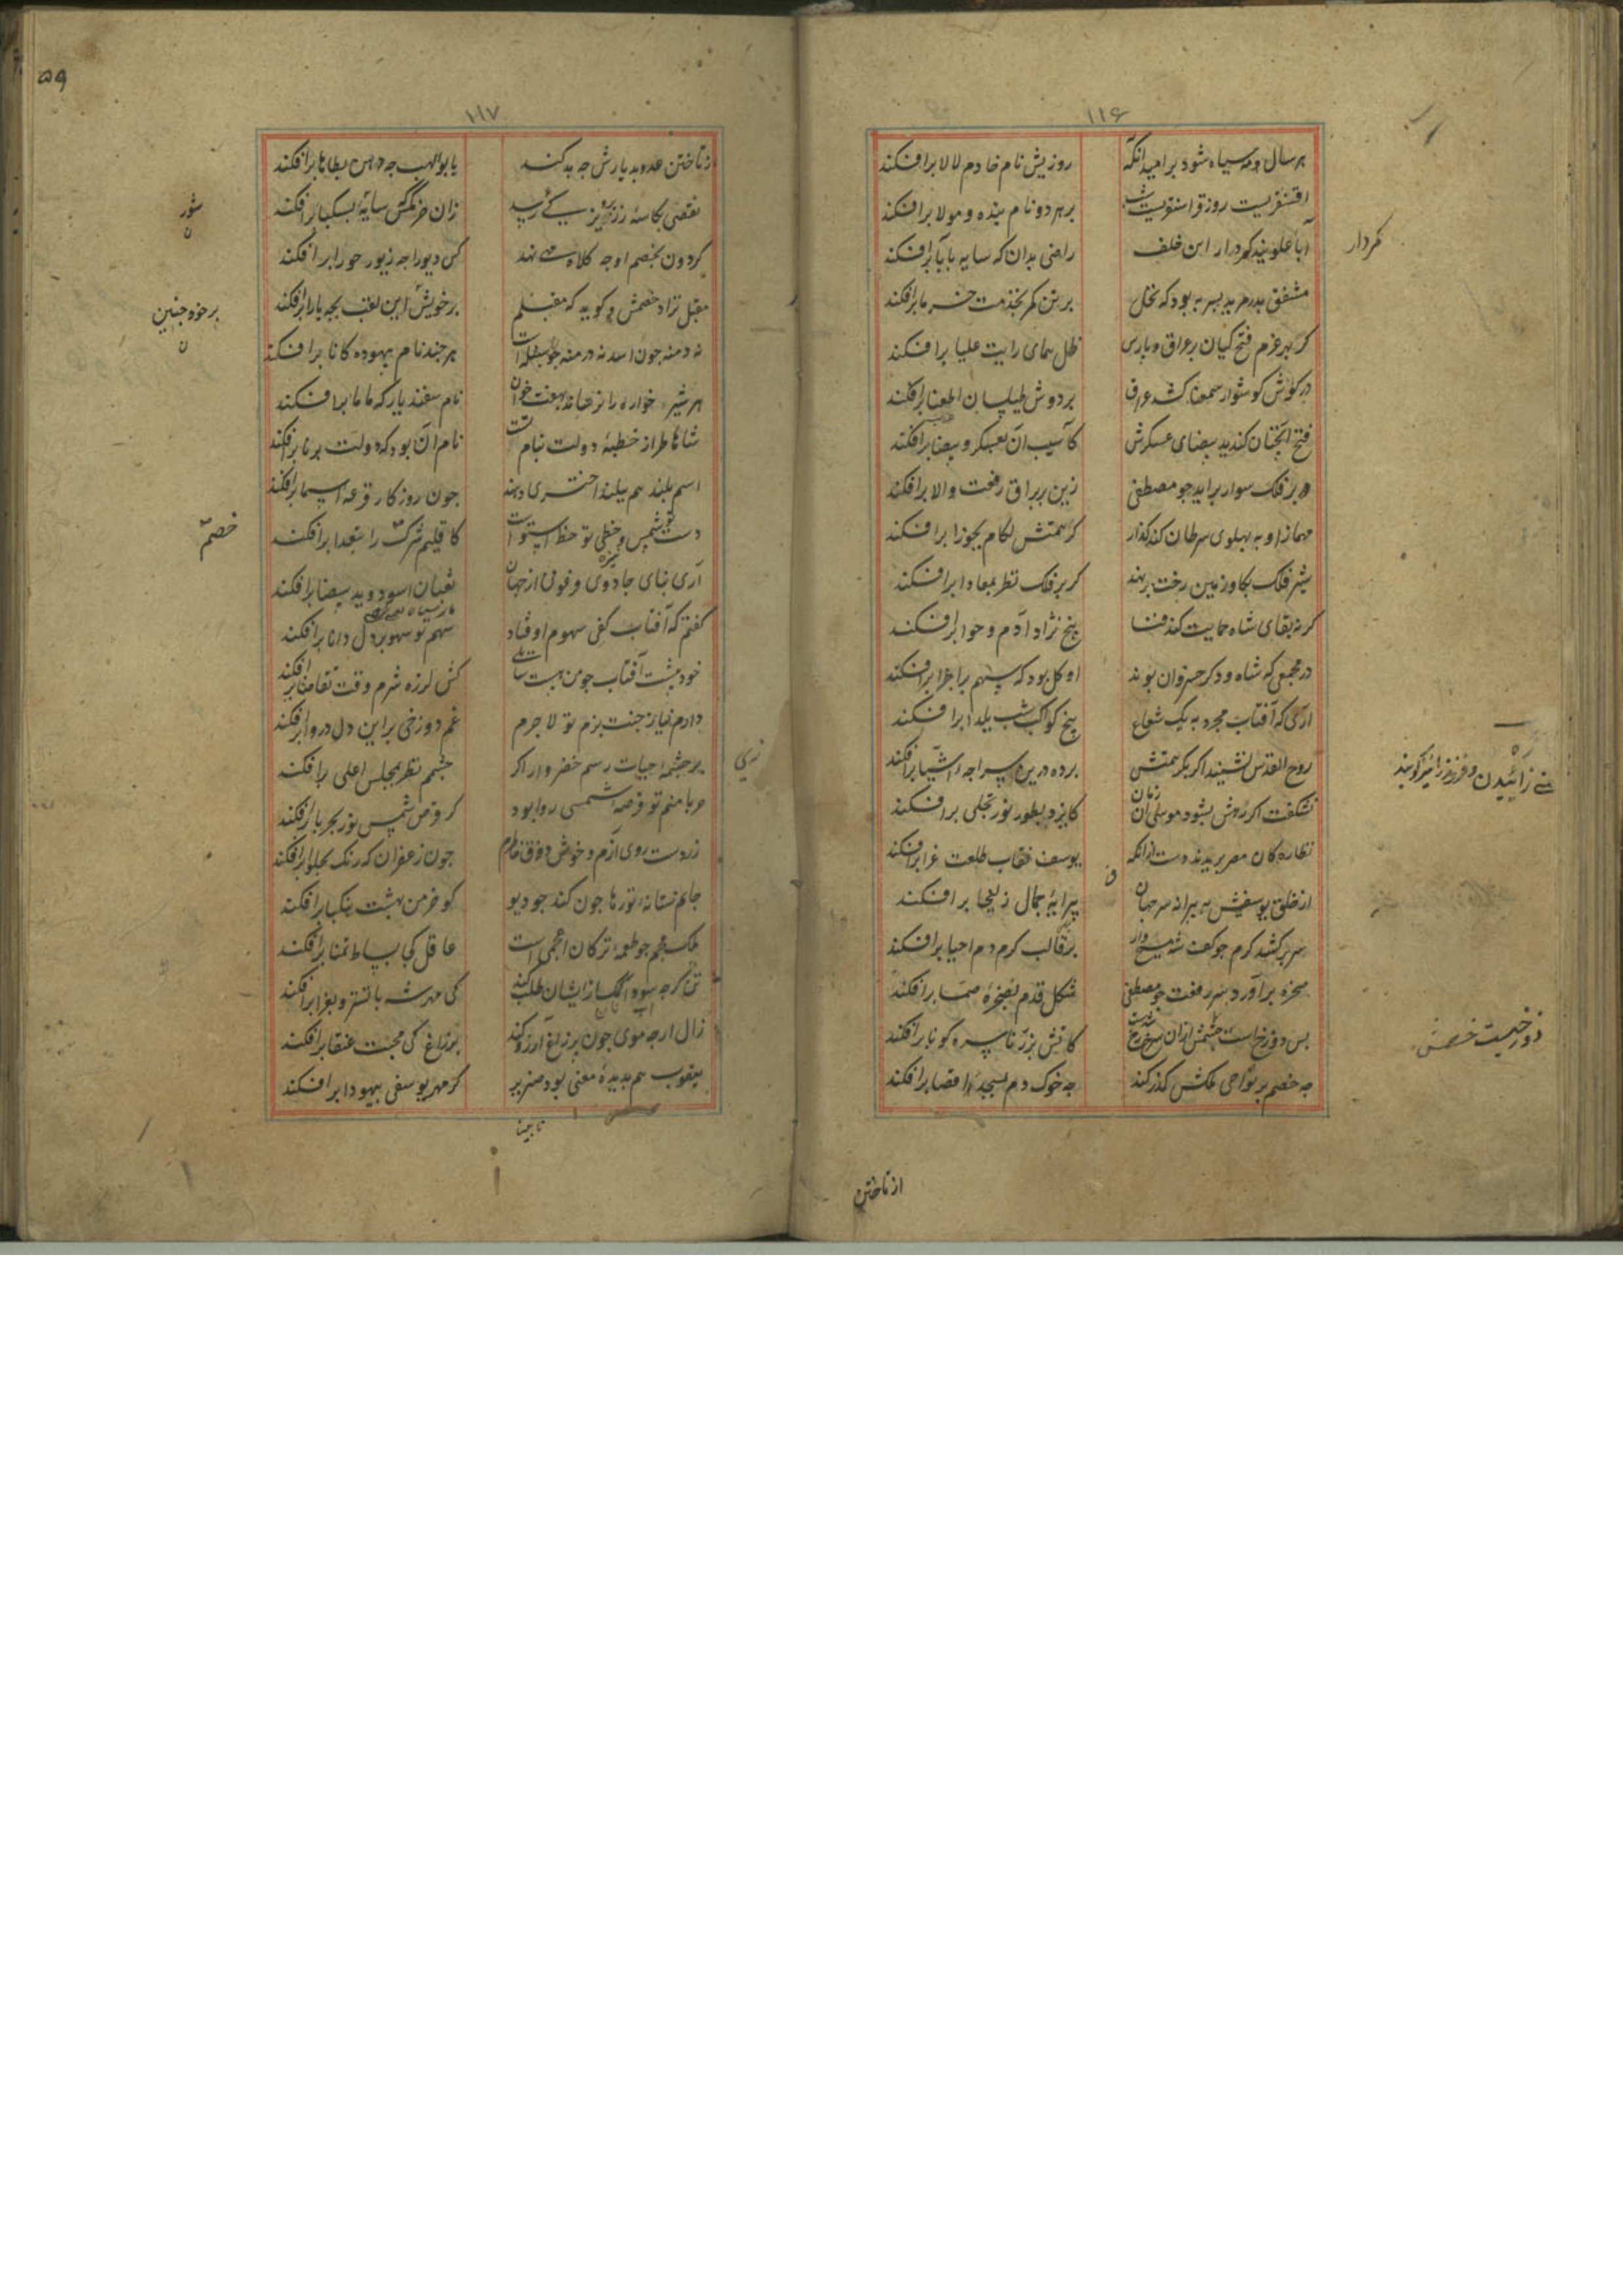 ۱۱۶
هر سال و مه سیاه شود بر امید آنکه روزیش نام خادم لالا برافکند
اقسنقریست روز قراسنقریست شب بر هر دو نام بنده و مولا برافکند
آبا علویند کمردار این خلف راضی بدان که سایه بآبا برافکند
کردار
مشفق پدر مرید پسر به بود که نخل بر تن کمر بخدمت خرما برافکند
کز بهر عزم فتح کیان بر عراق و پارس ظل همای رایت علیا برافکند
در کوش کوشوار سمعنا کشد عراق بر دوش طیلسان اطعنا برافکند
فتح آنچنان کند ید بیضای عسکرش کآسیب آن بعسکر و بیضا برافکند
بر فلک سوار برآید جو مصطفی زین بر براق رفعت والا برافکند
مهماز او به بهلوی سرطان کند کذار کز همتش لکام بجوزا برافکند
شیر فلک بکاو زمین رخت برنهد کر بر فلک نظر بمعادا برافکند
کر نه بقای شاه حمایت کند فنا بیخ نژاد آدم و حوا برافکند
در مجمعی که شاه و دکر خسروان بوند او کل بود که سهم بر اجزا برافکند
آری که آفتاب مجرد به یک شعاع بیخ کواکب شب یلدا برافکند
روح القدس نشیند اکر بکر همتش برده درین سراجه اشیا برافکند
زائیدن و فرزند را نیز کویند
نشکفت اکر ز هش بشود موسی آن زمان کایزد بطور نور تجلی برافکند
نظاره کان مصر بریدند دست ازانکه یوسف نقاب طلعت غرا برافکند
از خلق یوسفیش به پیرانه سر جهان پیرایهٔ جمال زلیخا برافکند
سر برکشد کرم جو کف شه مسیح وار بر قالب کرم دم احیا برافکند
صخره برآورد سر رفعت جو مصطفی شکل قدم بصخرهٔ صما برافکند
بس دوزخ است خشمش ازان سرخ شدست کآتش بزر ناسره کونا برافکند
دوزخیست خصمش
جه خصم بر نواحی ملکش کذر کند جه خوک دم بمسجد اقصا برافکند
از تاختن
۵۹
۱۱۷
از تاختن عدو بدیارش جه بد کند یا بولهب جه وهن بطاها برافکند
نقصی بکاسهٔ زر پرویز کی رسید زان خرمکس سایهٔ بسکبا برافکند
شور
ن
کردون بخصم او جه کلاه مهی نهد کس دیو را جه زیور حورا برافکند
مقبل نزاد خصمش و کوید که مقبلم بر خویش این لقب بجه یارا برافکند
بر خود جنین
ن
نه دمنه جون اسد نه درمنه جو سنبله است هر جند نام بیهوده کانا برافکند
هر شیر خواره را نرساند بهفت خوان نام سفندیار که ماما برافکند
شاها طراز خطبهٔ دولت بنام تست نام آن بود که دولت برنا برافکند
اسم بلند هم ببلند اختری دهند جون روزکار قرعهٔ اسما برافکند
خصم
آری بنای جادوی فرعون از جهان ثعبان اسود و ید بیضا برافکند
کفتم که آفتاب کفی سهوم اوفتاد سهم تو سهو بر دل دانا برافکند
دارم نیاز جنت بزم تو لاجرم غم دوزخی براین دل دروا برافکند
بر جشمهٔ حیات رسم خضروار اکر جشم نظر بمجلس اعلی برافکند
حربا منم تو قرصهٔ شمسی روا بود کر قرص شمس نور بحربا برافکند
زردست روی آزم و خوش ذوق خاطرم جون زعفران که رنک بحلوا برافکند
ملک عجم جو طعمهٔ ترکان اعجمی است عاقل کجا بساط تمنا برافکند
تن کرجه سو و اکمک ازایشان طلب کند کی مهر شه باتسز و بغرا برافکند
زال ارجه موی جون بر زاغ آرزو کند بر زاغ کی محبت عنقا برافکند
یعقوب هم بدیدهٔ معنی بود ضریر کر مهر یوسفی بیهودا برافکند
نابینا